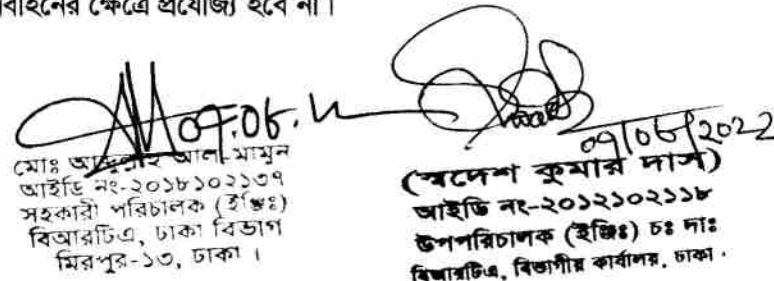 ক্ষেত্রে প্রযোজ্য হবে না।
০৭.০৮.
০৭/০৮/2022
মোঃ আব্দুল্লাহ আল-মামুন
আইডি নং-২০১৮১০২১৩৭
সহকারী পরিচালক (ইঞ্জিঃ)
বিআরটিএ, ঢাকা বিভাগ
মিরপুর-১৩, ঢাকা।
(স্বদেশ কুমার দাস)
আইডি নং-২০১২১০২১১৮
উপপরিচালক (ইঞ্জিঃ) চঃ দাঃ
বিআরটিএ, বিভাগীয় কার্যালয়, ঢাকা।